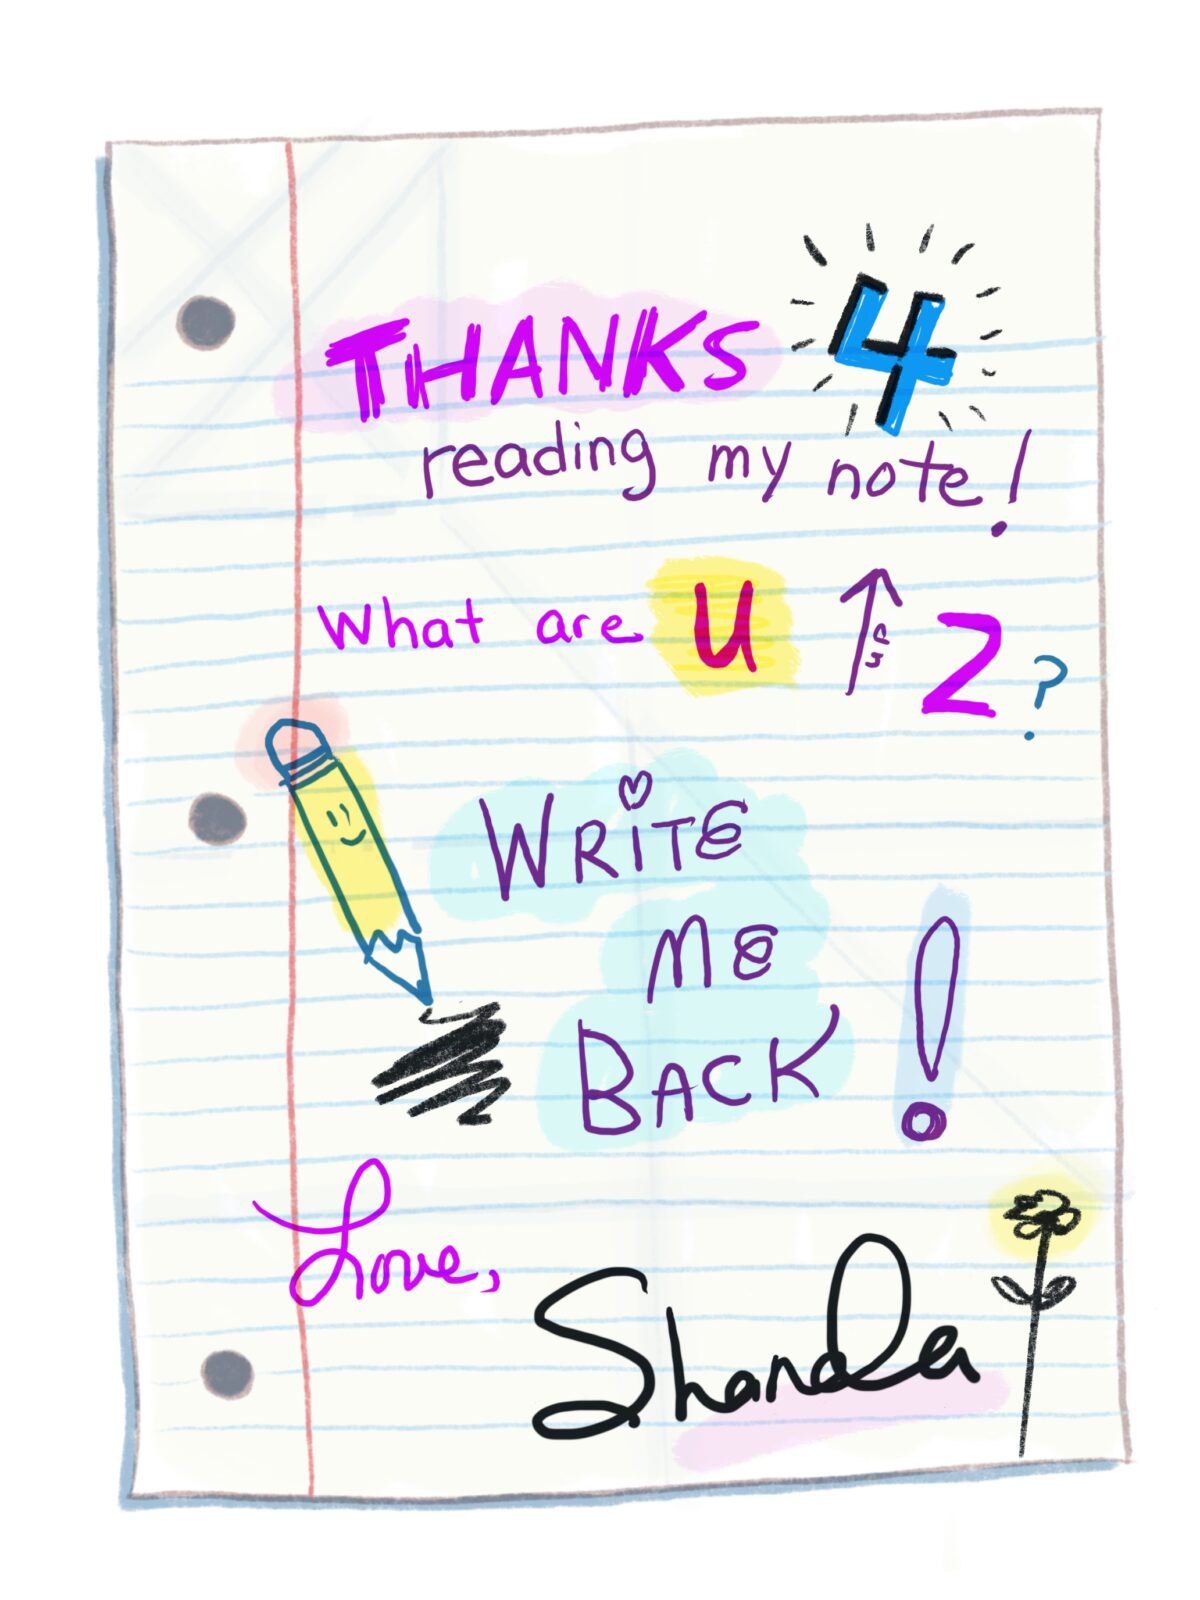 THANKS 4
reading my note!
What are U up 2?
WRITE
ME
BACK!
Love,
Shanda